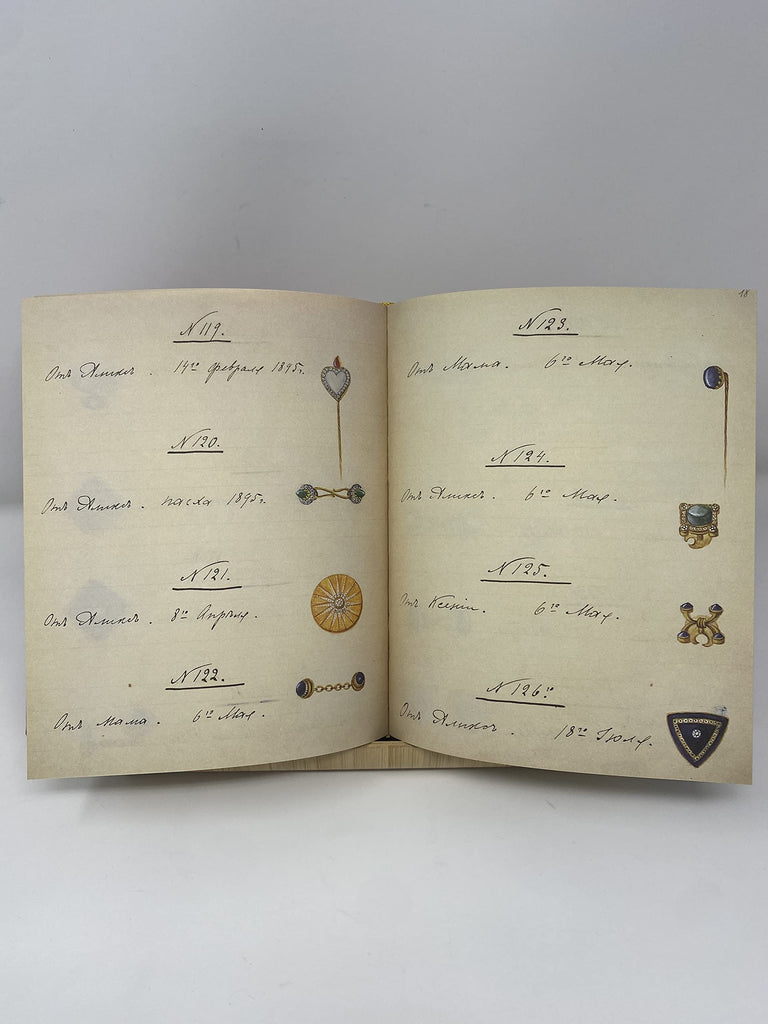 N 119.
Отъ Аликсъ. 14го февраля 1895г.
N 120.
Отъ Аликсъ. пасха 1895г.
N 121.
Отъ Аликсъ. 8го Апрѣля.
N 122.
Отъ Мама. 6го Мая.
18
N 123.
Отъ Мама. 6го Мая.
N 124.
Отъ Аликсъ. 6го Мая.
N 125.
Отъ Ксеніи. 6го Мая.
N 126.
Отъ Аликсъ. 18го Іюля.